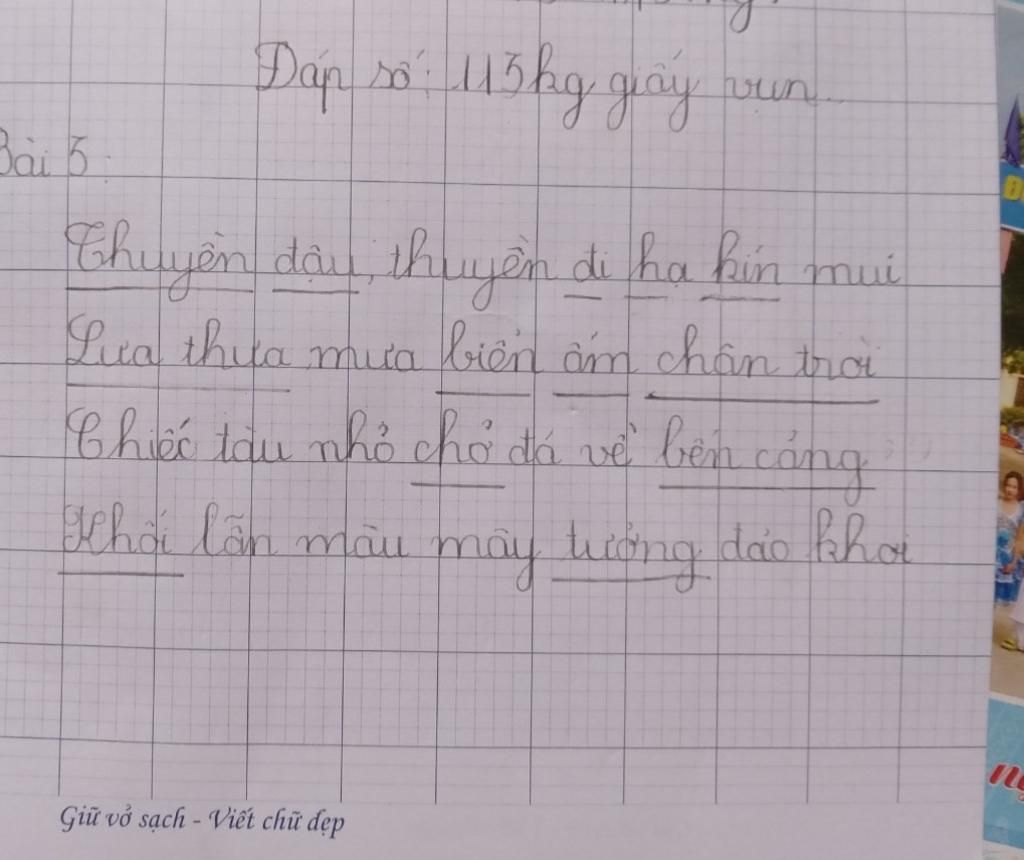 Đáp số: 115kg giấy vụn
Bài 5
Thuyền đậu, thuyền đi hạ kín mui
Lưa thưa mưa biển ấm chân trời
Chiếc tàu nhỏ chở đá về bến cảng
Khói lẫn màu mây tưởng đảo khơi
Giữ vở sạch - Viết chữ đẹp